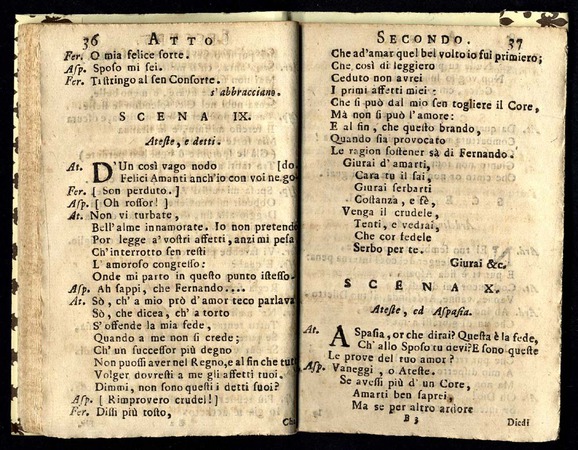 36 ATTO
Fer. O mia felice sorte.
Asp. Sposo mi sei.
Fer. Ti stringo al sen Consorte.
s'abbracciano.
SCENA IX.
Ateste, e detti.
At. D'Un così vago nodo [do.
Felici Amanti anch'io con voi ne go-
Fer. [Son perduto.]
Asp. [Oh rossor!]
At. Non vi turbate,
Bell'alme innamorate. Io non pretendo
Por legge a' vostri affetti, anzi mi pesa
Ch'interrotto sen resti
L'amoroso congresso:
Onde mi parto in questo punto istesso.
Asp. Ah sappi, che Fernando....
At. Sò, ch'a mio prò d'amor teco parlava
Sò, che dicea, ch'a torto
S'offende la mia fede,
Quando a me non si crede;
Ch'un successor più degno
Non puossi aver nel Regno, e al fin che tutti
Volger dovresti a me gli affetti tuoi.
Dimmi, non sono questi i detti suoi?
Asp. [Rimprovero crudel!]
Fer. Dissi più tosto,
Che
SECONDO. 37
Che ad'amar quel bel volto io fui primiero;
Che così di leggiero
Ceduto non avrei
I primi affetti miei:
Che si può dal mio sen togliere il Core,
Mà non si può l'amore:
E al fin, che questo brando,
Quando sia provocato
Le ragion sostener sà di Fernando.
Giurai d'amarti,
Cara tu il sai,
Giurai serbarti
Costanza, e fè,
Venga il crudele,
Tenti, e vedrai,
Che cor fedele
Serbo per te.
Giurai &c.
SCENA X.
Ateste, ed Aspasia.
At. ASpasia, or che dirai? Questa è la fede,
Ch'allo Sposo tu devi? E sono queste
Le prove del tuo amor?
Asp. Vaneggi, o Ateste.
Se avessi più d'un Core,
Amarti ben saprei,
Ma se per altro ardore
B 3 Diedi